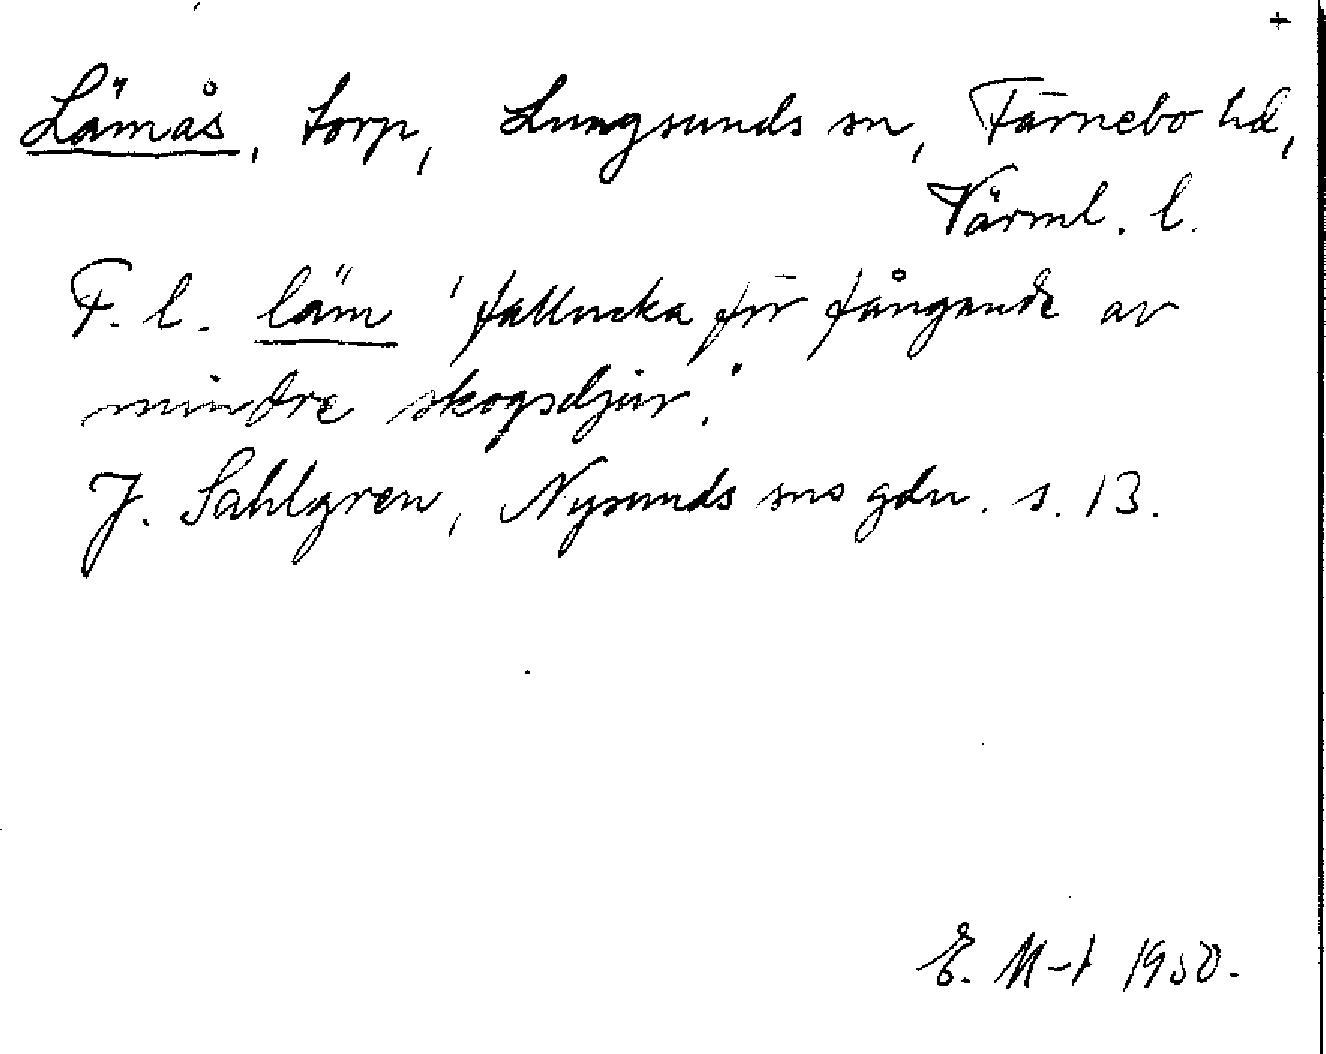 +
Lämås, torp, Lungsunds sn, Färnebo hd,
Värml. l.
F. l. läm 'fallucka för fångande av
mindre skogsdjur'.
J. Sahlgren, Nysunds sns gdn. s. 13.
E. M-t 1950.